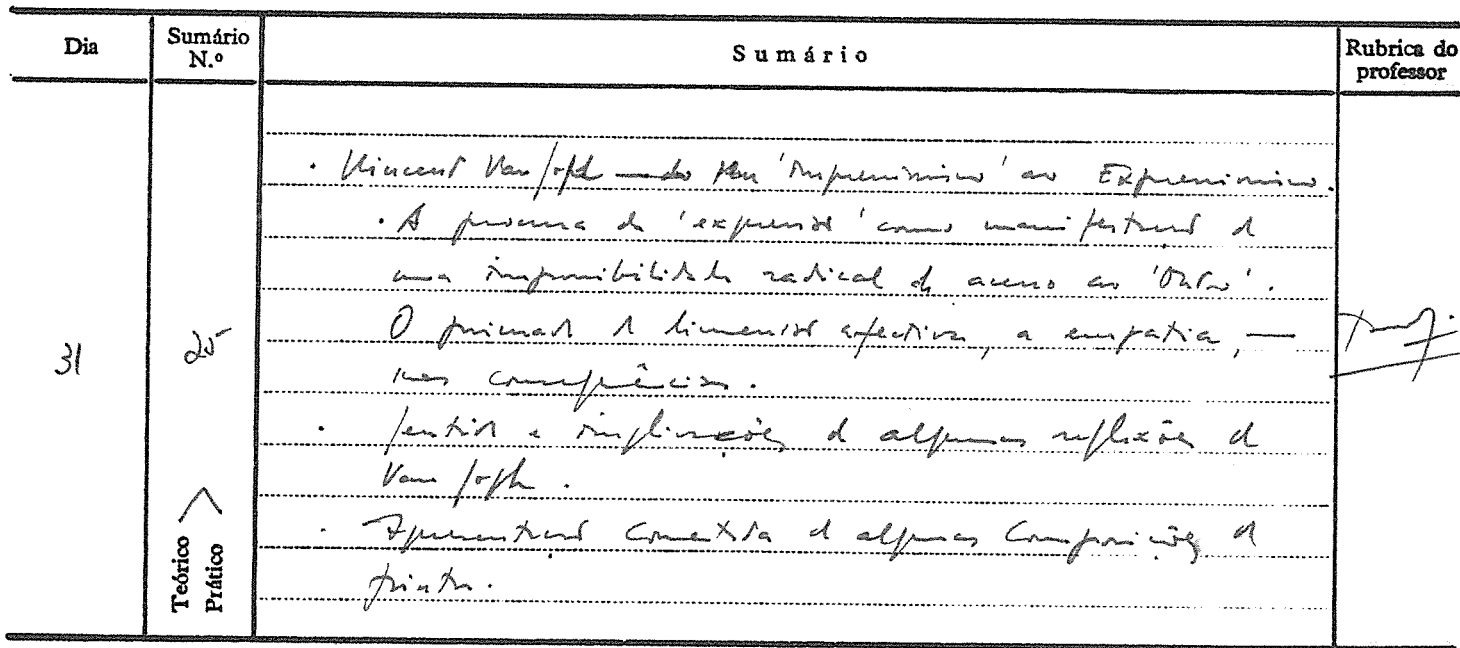 Dia
Sumário N.º
Sumário
Rubrica do professor
31
25
Teórico
Prático
. Vincent Van Gogh — do seu 'Impressionismo' ao Expressionismo.
. A procura da 'expressão' como manifestação de
uma impossibilidade radical de acesso ao 'Outro'.
O primado da dimensão afectiva, a empatia, —
suas consequências.
. Sentido e implicações de algumas reflexões de
Van Gogh.
. Apresentação comentada de algumas composições do
pintor.